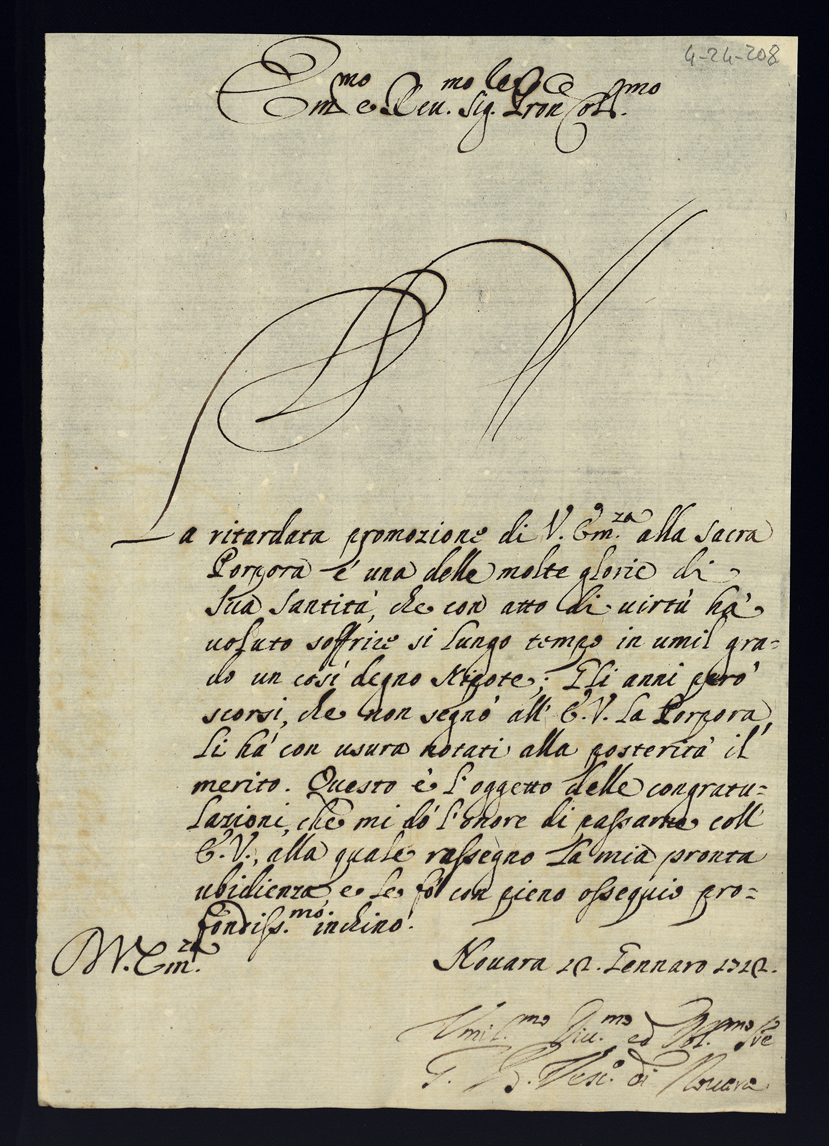 4-24-208
Em.mo e Reu.mo Sig. Pron Col.mo
La ritardata promozione di V. Em.za alla Sacra
Porpora é una delle molte glorie di
Sua Santitá, che con atto di uirtú há
uoluto soffrire si lungo tempo in umil gra=
do un cosí degno Nipote; Gli anni peró
scorsi, che non segnó all' E.V. la Porpora,
li há con usura notati alla posteritá il
merito. Questo é l'oggetto delle congratu=
lazioni, che mi dó l'onore di passarne coll'
E.V., alla quale rassegno la mia pronta
ubidienza, e le fó con pieno ossequio pro=
fondiss.mo inchino.
D.V. Em.za
Nouara 12. Gennaro 1712.
Vmil.mo Diu.mo ed Obl.mo Sre
G. B. Vesc.o di Nouara